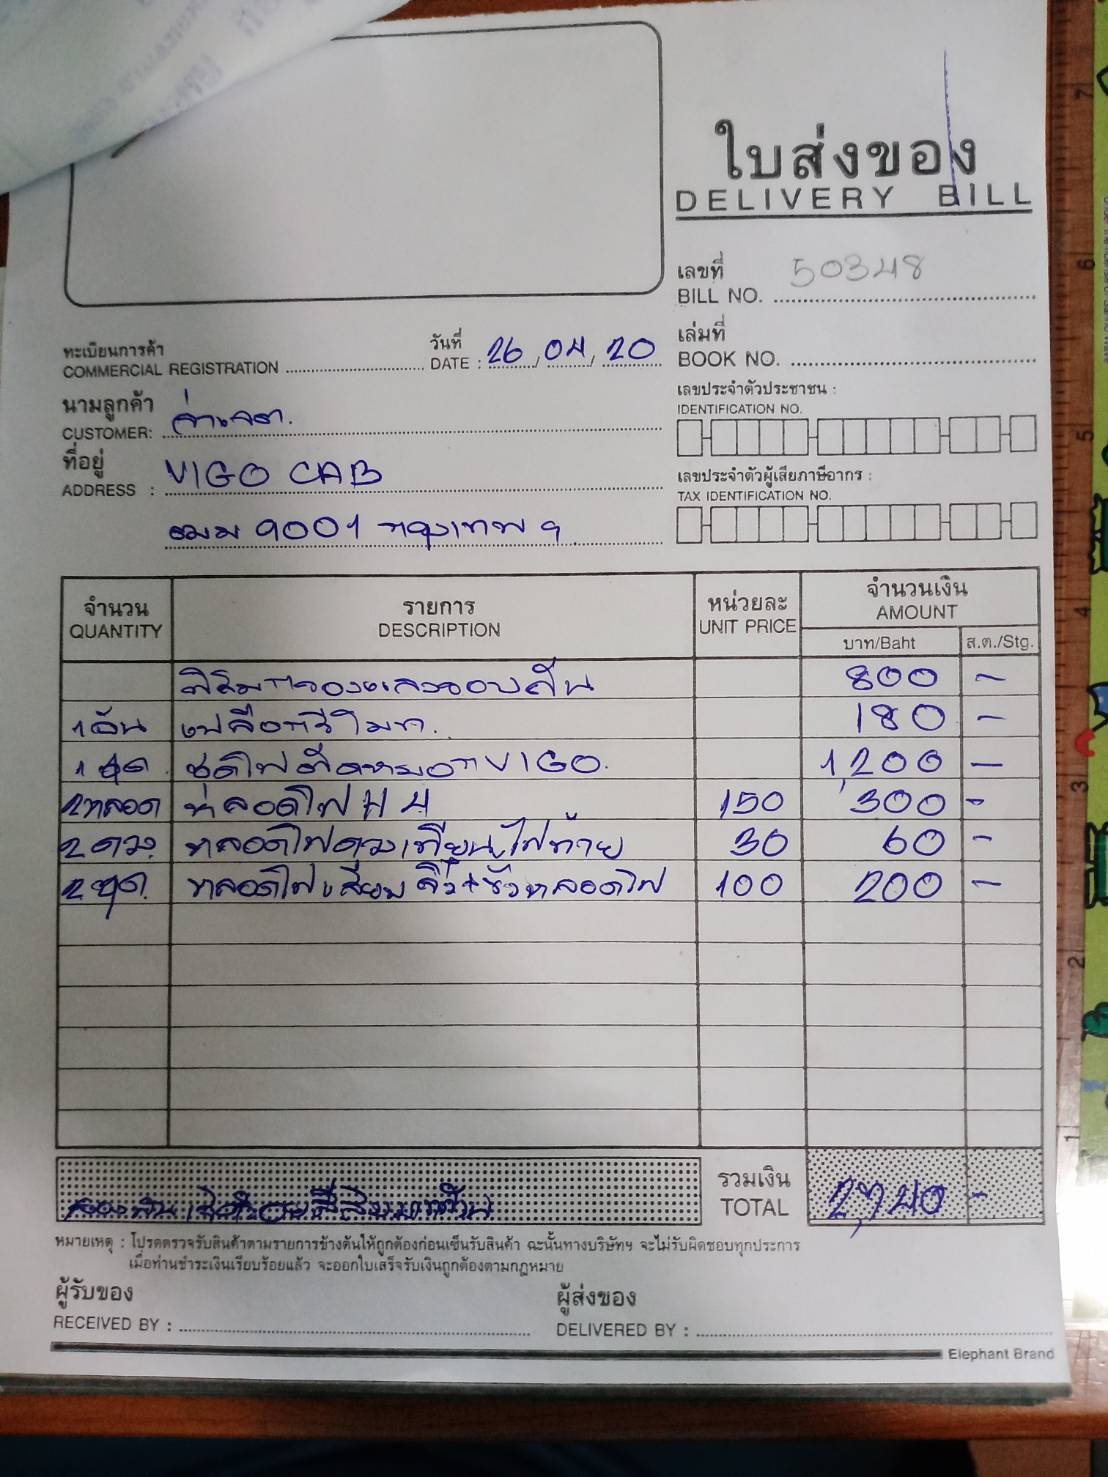 ใบส่งของ
DELIVERY BILL
เลขที่
BILL NO. 50348
ทะเบียนการค้า
COMMERCIAL REGISTRATION
วันที่
DATE : 26, 04, 20
เล่มที่
BOOK NO.
นามลูกค้า
CUSTOMER:
เลขประจำตัวประชาชน :
IDENTIFICATION NO.
ที่อยู่
ADDRESS : VIGO CAB
เลขประจำตัวผู้เสียภาษีอากร :
TAX IDENTIFICATION NO.
9001 กรุงเทพฯ
จำนวน รายการ หน่วยละ จำนวนเงิน
QUANTITY DESCRIPTION UNIT PRICE AMOUNT
บาท/Baht ส.ต./Stg.
ฟิล์มกรองแสงรอบคัน 800 -
1 อัน เปลือกรีโมท. 180 -
1 ชุด ชุดไฟตัดหมอก VIGO. 1,200 -
2 หลอด หลอดไฟ H4 150 300 -
2 ดวง หลอดไฟดวงเทียน, ไฟท้าย 30 60 -
2 ชุด หลอดไฟเสียบ + ขั้วหลอดไฟ 100 200 -
รวมเงิน
TOTAL 2,740 -
หมายเหตุ : โปรดตรวจรับสินค้าตามรายการข้างต้นให้ถูกต้องก่อนเซ็นรับสินค้า ฉะนั้นทางบริษัทฯ จะไม่รับผิดชอบทุกประการ
เมื่อท่านชำระเงินเรียบร้อยแล้ว จะออกใบเสร็จรับเงินถูกต้องตามกฎหมาย
ผู้รับของ ผู้ส่งของ
RECEIVED BY : DELIVERED BY :
Elephant Brand